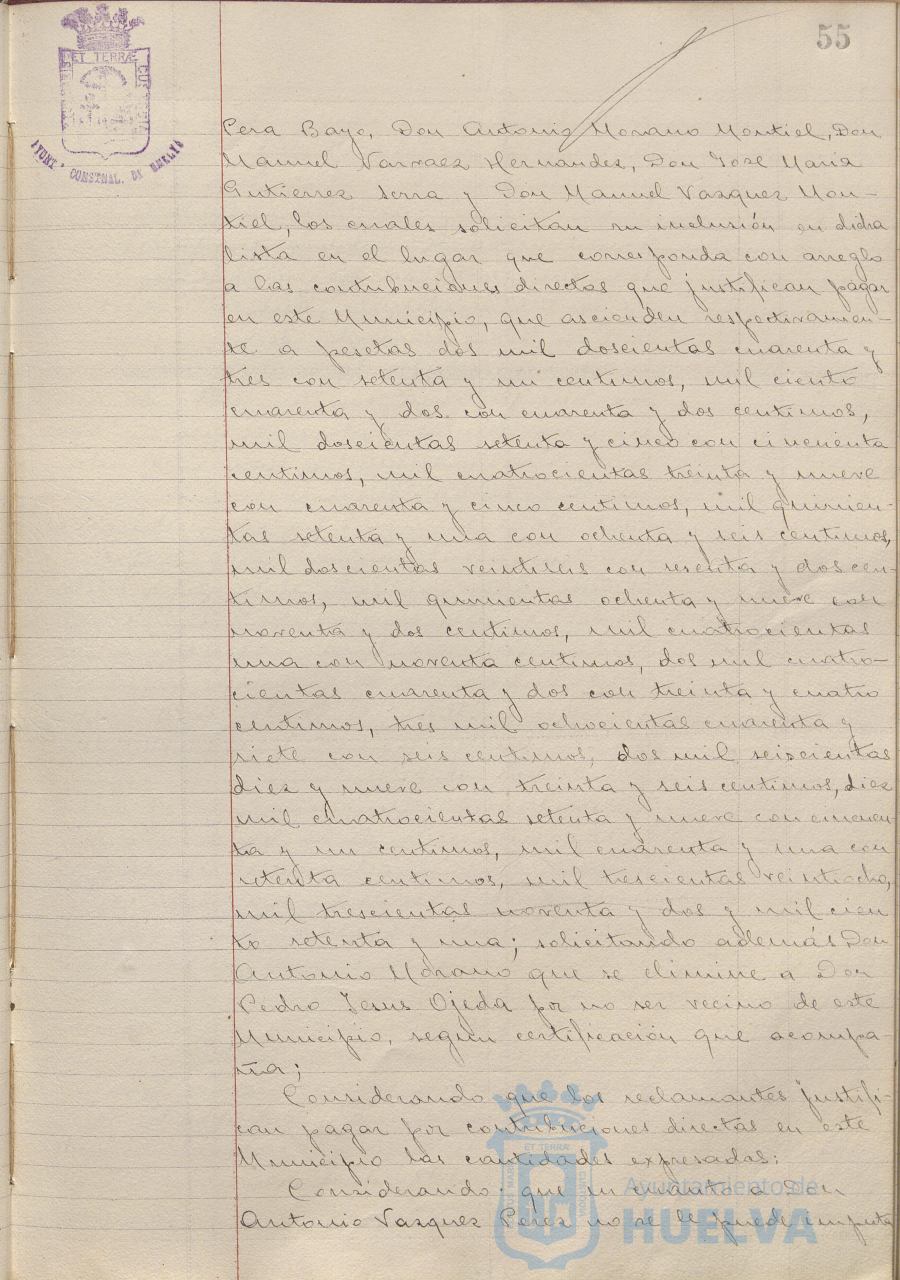 55
ET TERRÆ
AYUNT. CONSTNAL. DE HUELVA
Cera Bayo, Don Antonio Morano Montiel, Don
Manuel Narvaez Hernandez, Don José Maria
Gutierrez Serra y Don Manuel Vazquez Mon-
tiel, los cuales solicitan su inclusión en dicha
lista en el lugar que corresponda con arreglo
a las contribuciones directas que justifican pagar
en este Municipio, que ascienden respectivamen-
te a pesetas dos mil doscientas cuarenta y
tres con setenta y un centimos, mil ciento
cuarenta y dos con cuarenta y dos centimos,
mil doscientas setenta y cinco con cincuenta
centimos, mil cuatrocientas treinta y nueve
con cuarenta y cinco centimos, mil quinien-
tas setenta y una con ochenta y seis centimos,
mil doscientas veintiseis con sesenta y dos cen-
timos, mil quinientas ochenta y nueve con
noventa y dos centimos, mil cuatrocientas
una con noventa centimos, dos mil cuatro-
cientas cuarenta y dos con treinta y cuatro
centimos, tres mil ochocientas cuarenta y
siete con seis centimos, dos mil seiscientas
diez y nueve con treinta y seis centimos, diez
mil cuatrocientas setenta y nueve con cincuen-
ta y un centimos, mil cuarenta y una con
setenta centimos, mil trescientas veintiocho,
mil trescientas noventa y dos y mil cien
to setenta y una; solicitando además Don
Antonio Morano que se elimine a Don
Pedro Jesus Ojeda por no ser vecino de este
Municipio, segun certificación que acompa-
ña;
Considerando que los reclamantes justifi-
can pagar por contribuciones directas en este
Municipio las cantidades expresadas:
Considerando: que en cuanto a Don
Antonio Vazquez Perez no se le puede imputa
ET TERRÆ
Ayuntamiento de
HUELVA